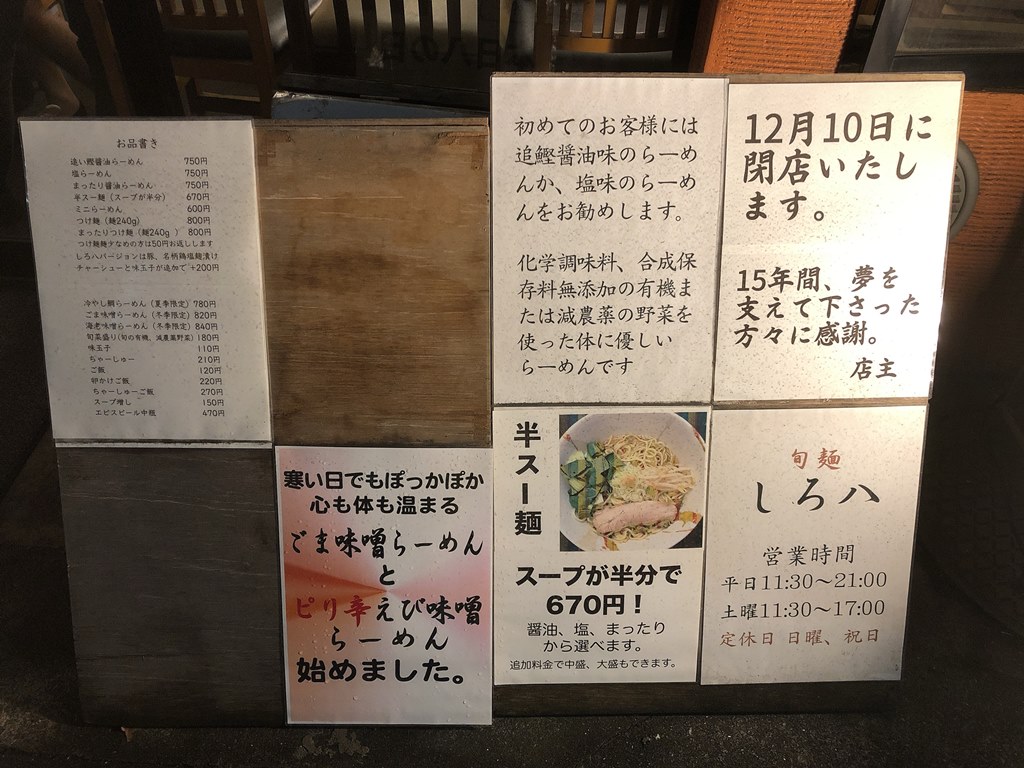 お品書き
追い鰹醤油らーめん 750円
塩らーめん 750円
まったり醤油らーめん 750円
半スー麺（スープが半分） 670円
ミニらーめん 600円
つけ麺（麺240g） 800円
まったりつけ麺（麺240g ） 800円
つけ麺麺少なめの方は50円お返しします
しろハバージョンは豚、名柄鶏塩麹漬け
チャーシューと味玉子が追加で +200円
冷やし鯛らーめん（夏季限定）780円
ごま味噌らーめん（冬季限定）820円
海老味噌らーめん（冬季限定）840円
旬菜盛り(旬の有機、減農薬野菜）180円
味玉子 110円
ちゃーしゅー 210円
ご飯 120円
卵かけご飯 220円
ちゃーしゅーご飯 270円
スープ増し 150円
エビスビール中瓶 470円
寒い日でもぽっかぽか
心も体も温まる
ごま味噌らーめん
と
ピリ辛えび味噌
らーめん
始めました。
初めてのお客様には
追鰹醤油味のらーめ
んか、塩味のらーめ
んをお勧めします。
化学調味料、合成保
存料無添加の有機ま
たは減農薬の野菜を
使った体に優しい
らーめんです
半スー麺
スープが半分で
670円！
醤油、塩、まったり
から選べます。
追加料金で中盛、大盛もできます。
12月10日に
閉店いたし
ます。
15年間、夢を
支えて下さった
方々に感謝。
店主
旬麺
しろ八
営業時間
平日11:30～21:00
土曜11:30～17:00
定休日 日曜、祝日